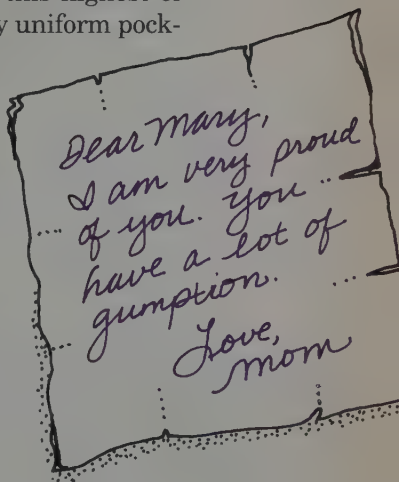 y uniform pock-
Dear Mary,
I am very proud
of you. You
have a lot of
gumption.
Love,
Mom